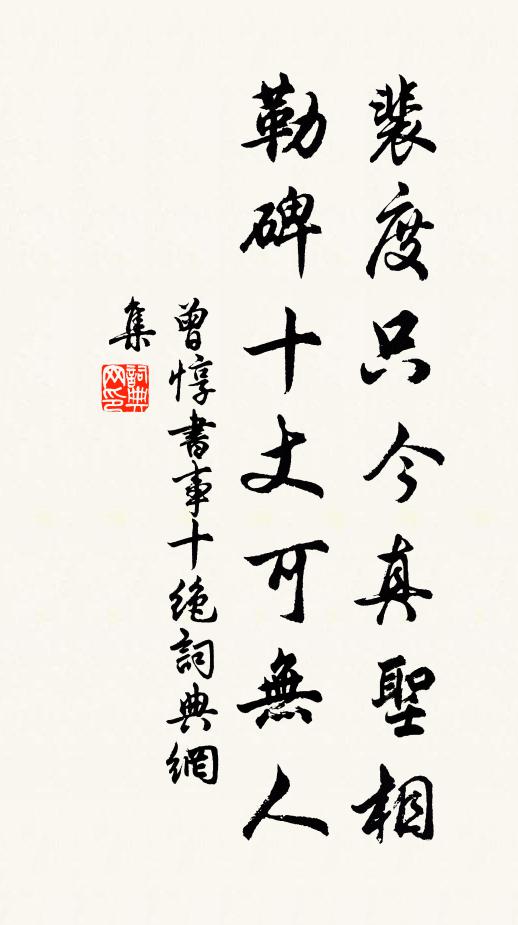 裴度只今真聖相
勒碑十丈可無人
曾惇書事十絶詞典網
集
詞典
网印